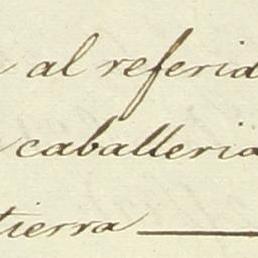 al referid
caballeria
tierra